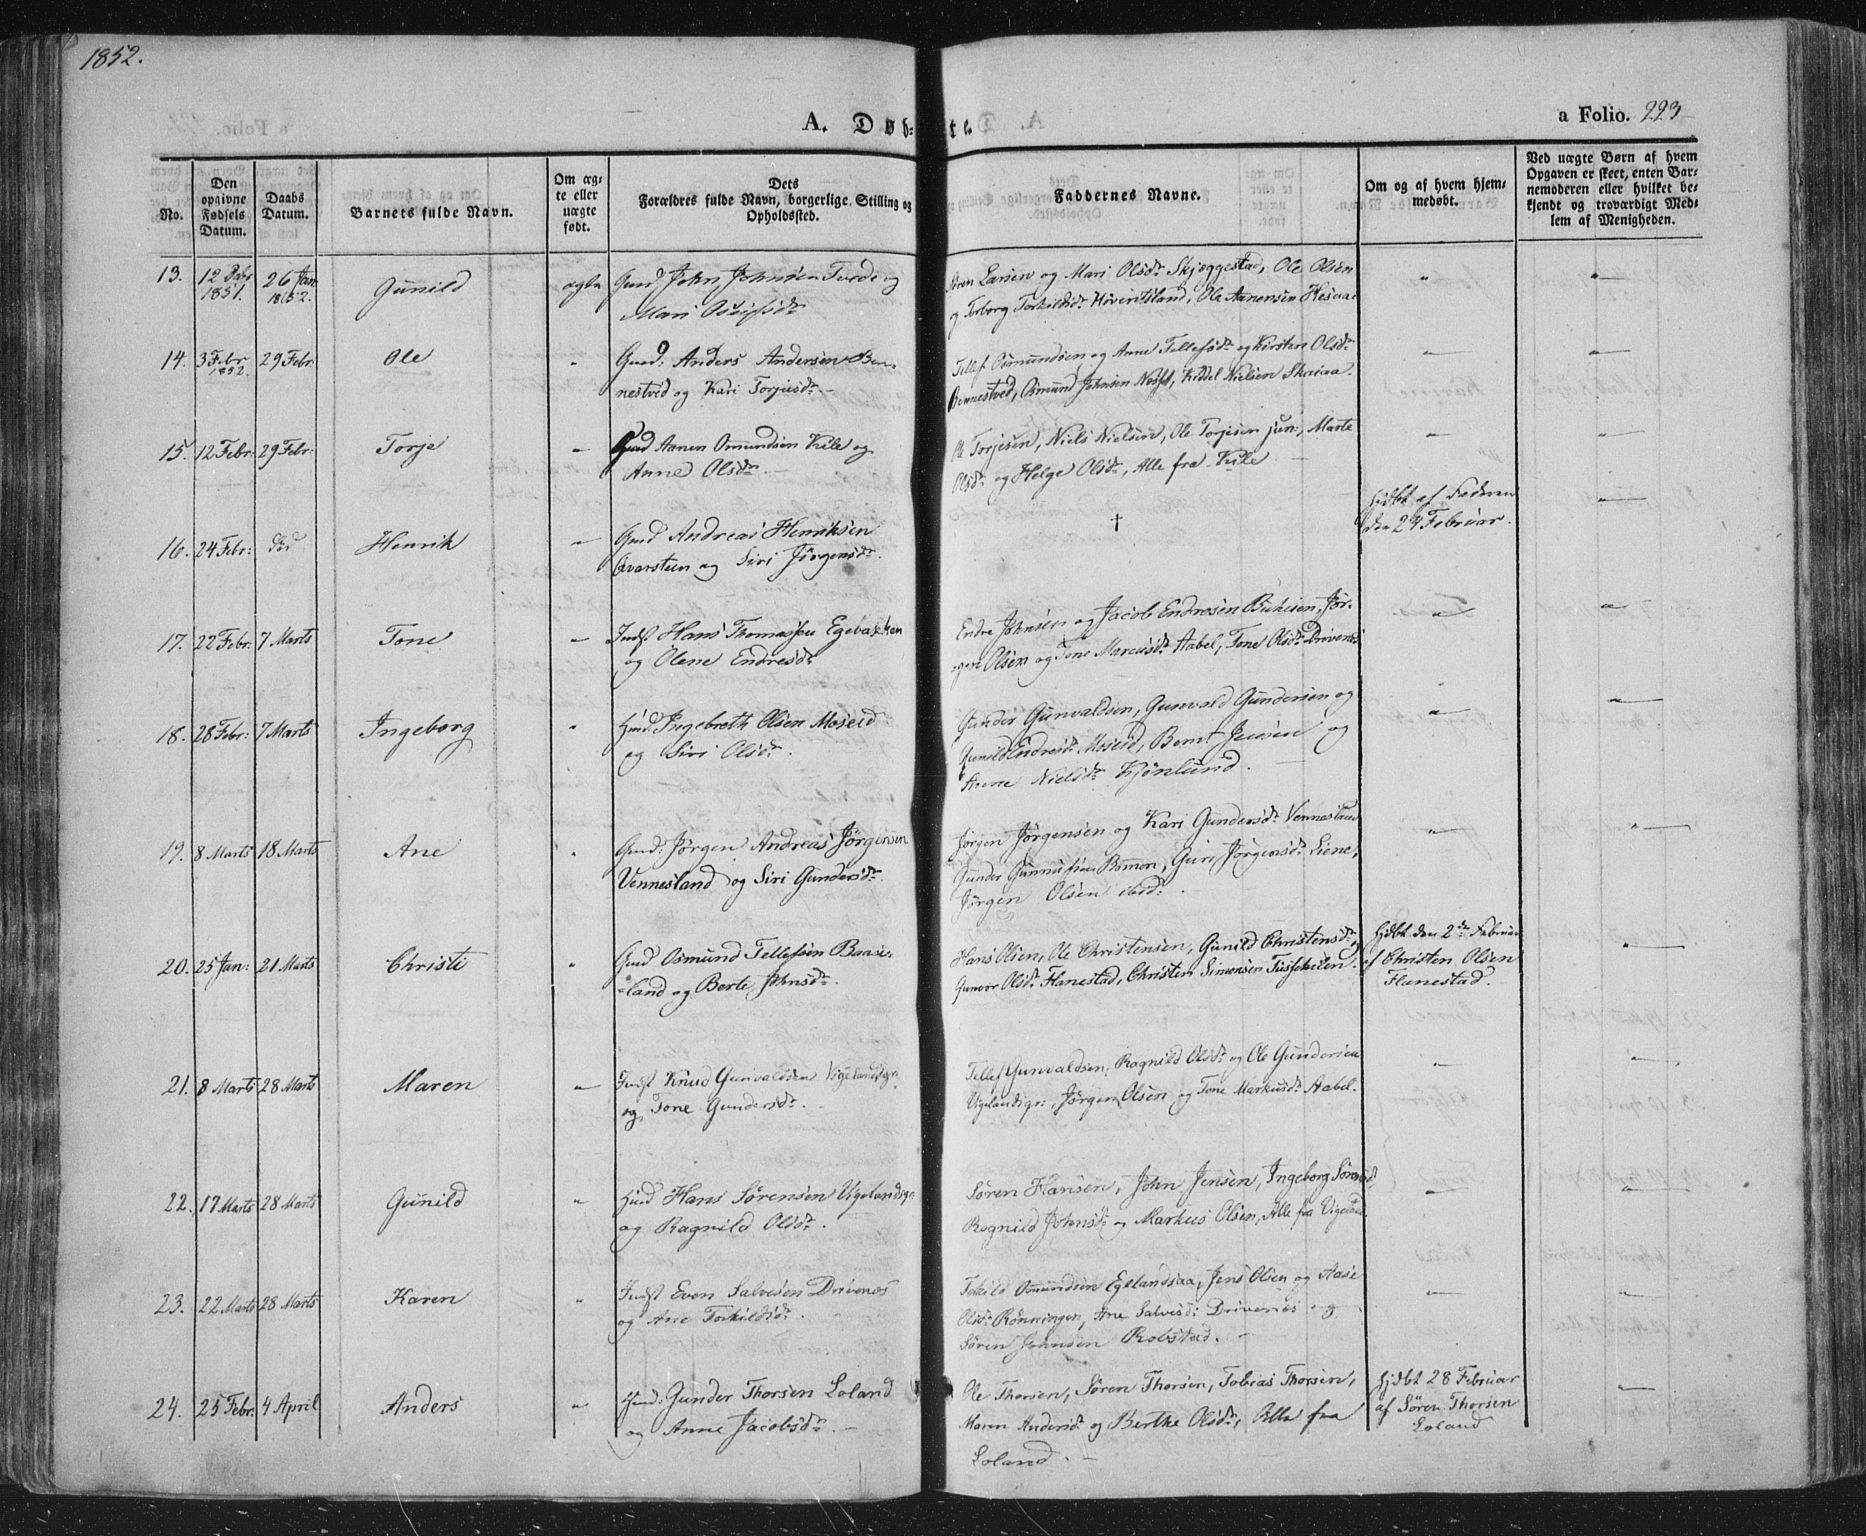 1852.
A. Døb-te.
a Folio. 223
No.
Den opgivne Fødsels Datum.
Daabs Datum.
Barnets fulde Navn.
Om ægte eller uægte født.
Dets Forældres fulde Navn, borgerlige Stilling og Opholdssted.
Faddernes Navne.
Om og af hvem hjemmedøbt.
Ved uægte Børn af hvem Opgaven er skeet, enten Barnemoderen eller hvilket bekjendt og troværdigt Medlem af Menigheden.
13. 12 Dcbr 1851. 26 Jan 1852. Gunild ægte Gmd John Johnsen Tvede og
Mari
Søren Larsen og Mari Olsdr. Skjæggestad, Ole Olsen
og Torborg Torkildsdr. Høveritsland, Ole Aanensen Hesaae
14. 3 Febr 1852. 29 Febr. Ole " Gmd: Anders Andersen Ben-
nestvèd og Kari Torjusdr. -
Tellef Osmundsen og Anne Tellefsdr. og Kirsten Olsdr.
Bennestved, Osmund Johnsen, Kiddel Nielsen Skaiaa.
15. 12 Febr: 29 Febr: Torje - Gmd Aanen Omundsen Kile og
Anne Olsdr.
Ole Torjesen, Niels Nielsen, Ole Torjesen jun:, Marte
Olsdr. og Helge Olsdr., Alle fra Kile
16. 24 Febr: død Henrik - Gmd Andreas Henriksen
Qvarstein og Siri Jörgensdr.
†
hjdbt af Faderen
den 24 Februar.
17. 22 Febr. 7 Marts Tone - Indst Hans Thomassen Egebakken
og Olene Endresdr.
Endre Johnsen og Jacob Endresen, Jör-
gen Olsen og Tone Marcusdr. Aabel, Tone Olsdr. Drivenes
18. 28 Febr: 7 Marts Ingeborg " Hmd: Ingebreth Olsen Moseid
og Siri Olsdr.
Gunder Gunvaldsen, Gunvald Gundersen og
Gunild Endresdr. Moseid, Bernt Jensen og
Anne Nielsdr. Kjönlund.
19. 8 Marts 18 Marts Ane " Gmd: Jörgen Andreas Jörgensen
Vennesland og Siri Gundersdr.
Jörgen Jörgensen og Kari Gundersdr. Vennesland
Gunder, Guri Jörgensdr. Liene,
Jörgen Olsen ibid:
20. 25 Jan: 21 Marts Christi " Gmd Osmund Tellefsen Baase-
land og Berte Johnsdr.
Hans Olsen, Ole Christensen, Gunild Christensdr. og
Gunvor Olsdr. Flanestad, Christen Simonsen Tusfekilen.
Hjdbt den 2de Februar
af Christen Olsen
Flanestad.
21. 8 Marts 28 Marts Maren - Indst Knud Gunvaldsen Vigelandsgr.
og Tone Gundersdr.
Tellef Gunvaldsen, Ragnild Olsdr. og Ole Gundersen
Vigelandsgr:, Jörgen Olsen og Tone Markusdr. Aabel.
22. 17 Marts 28 Marts Gunild " Hmd Hans Sörensen Vigelandsgr.
og Ragnild Olsdr.
Sören Hansen, John Jensen, Ingeborg Sörensd
Ragnild Johnsdr. og Markus Olsen, Alle fra Vigeland.
23. 22 Marts 28 Marts Karen " Indst Even Salvesen Drivenes
og Ane Torkildsdr.
Torkild Omundsen Egelandsaa, Jens Olsen og Aase
Olsdr. Rönningen, Ane Salvesdr: Drivenes og
Sören Johnsen Robstad. -
24. 25 Febr: 4 April Anders " Hmd: Gunder Thorsen Loland
og Anne Jacobsdr. -
Ole Thorsen, Sören Thorsen, Tobias Thorsen,
Maren Andersdr. og Berthe Olsdr., Alle fra
Loland. -
hjdbt 28 Februar
af Sören Thorsen
Loland